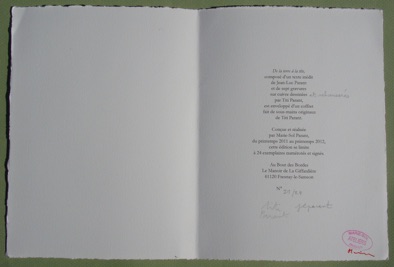 De la terre à la clé,
composé d'un texte inédit
de Jean-Luc Parant
et de sept gravures
sur cuivre dessinées et rehaussées
par Titi Parant,
est enveloppé d'un coffret
fait de sous-mains originaux
de Titi Parant.
Conçus et réalisés
par Marie-Sol Parant,
du printemps 2011 au printemps 2012,
cette édition se limite
à 24 exemplaires numérotés et signés.
Au Bout des Bordes
La Maison de La Giffardière
Nº /24
Titi
Parant